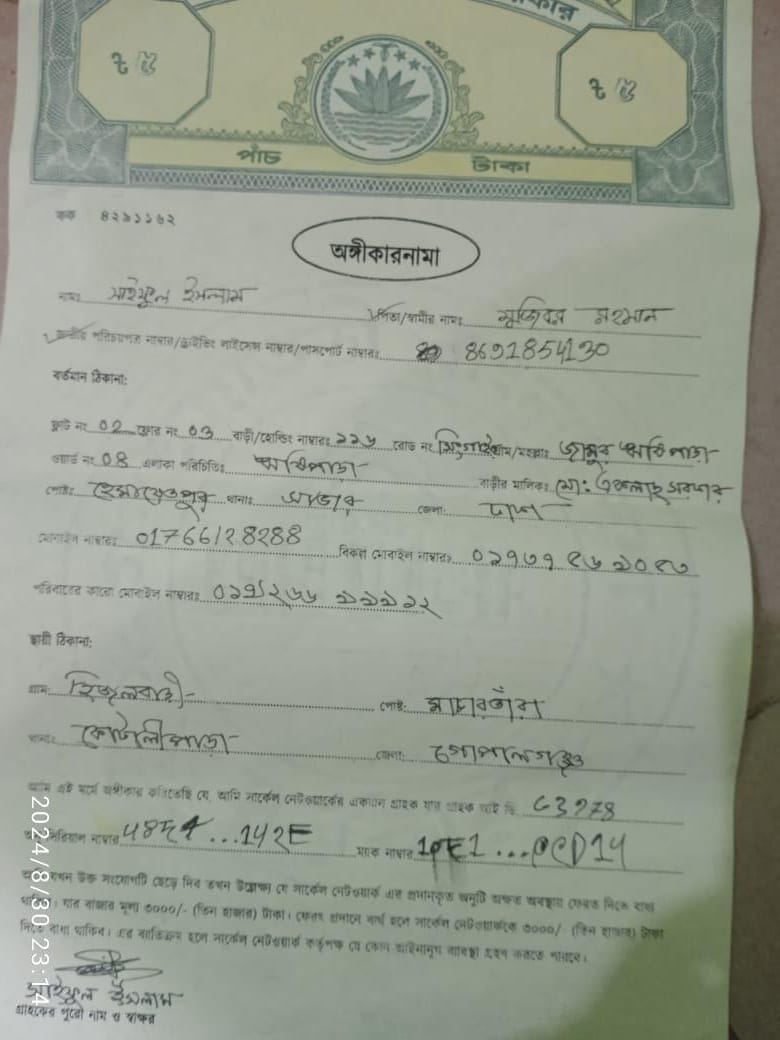 ৳ ৫
৳ ৫
পাঁচ টাকা
কক ৪২৯১১৬২
অঙ্গীকারনামা
নামঃ সাইফুল ইসলাম পিতা/স্বামীর নামঃ মুজিবর রহমান
জাতীয় পরিচয়পত্র নাম্বার/ড্রাইভিং লাইসেন্স নাম্বার/পাসপোর্ট নাম্বারঃ 8691854130
বর্তমান ঠিকানা:
ফ্লাট নং 02 ফ্লোর নং 03 বাড়ী/হোল্ডিং নাম্বারঃ ২২৬ রোড নং গ্রাম/মহল্লাঃ ঋষিপাড়া
ওয়ার্ড নং 08 এলাকা পরিচিতিঃ ঋষিপাড়া বাড়ীর মালিকঃ মো: সরদার
পোষ্টঃ হেমায়েতপুর থানাঃ সাভার জেলা: ঢাকা
মোবাইল নাম্বারঃ 01766128288 বিকল্প মোবাইল নাম্বারঃ
পরিবারের কারো মোবাইল নাম্বারঃ
স্থায়ী ঠিকানা:
গ্রাম: হিজলবাড়ী পোষ্ট:
থানাঃ কোটালীপাড়া জেলা: গোপালগঞ্জ
আমি এই মর্মে অঙ্গীকার করিতেছি যে, আমি সার্কেল নেটওয়ার্কের একজন গ্রাহক যার গ্রাহক আই ডি
সিরিয়াল নাম্বার ম্যাক নাম্বার
যখন উক্ত সংযোগটি ছেড়ে দিব তখন উল্লেখ্য যে সার্কেল নেটওয়ার্ক এর প্রদানকৃত অনুটি অক্ষত অবস্থায় ফেরত দিতে বাধ্য
থাকিব। যার বাজার মূল্য ৩০০০/- (তিন হাজার) টাকা। ফেরৎ প্রদানে ব্যর্থ হলে সার্কেল নেটওয়ার্ককে ৩০০০/- (তিন হাজার) টাকা
দিতে বাধ্য থাকিব। এর ব্যতিক্রম হলে সার্কেল নেটওয়ার্ক কর্তৃপক্ষ যে কোন আইনানুগ ব্যবস্থা গ্রহন করতে পারবে।
সাইফুল ইসলাম
গ্রাহকের পুরো নাম ও স্বাক্ষর
2024/8/30 23:14